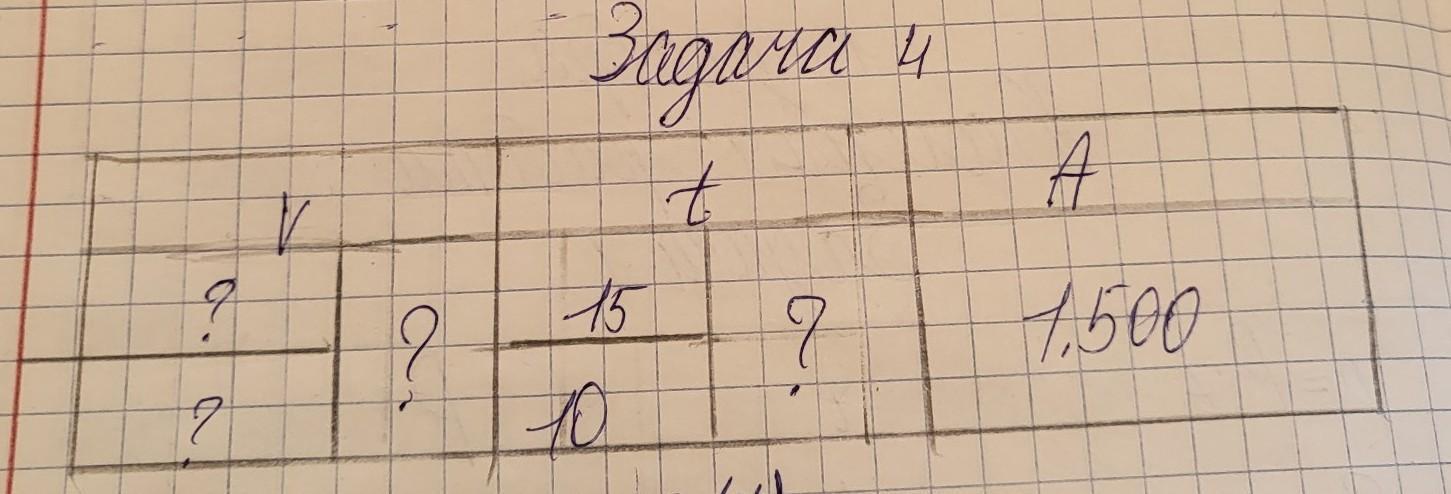 Задача 4
V t A
? ? 15 ? 1.500
? 10